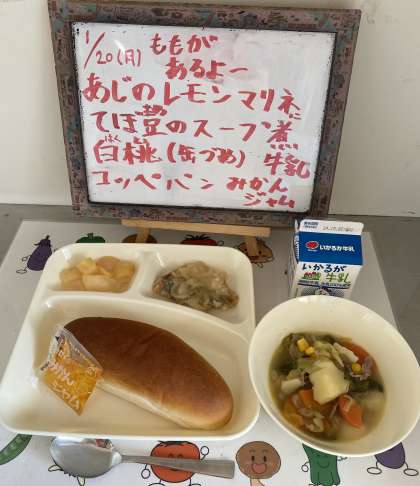 1/20(月)
ももが
あるよー
あじのレモンマリネ
てぼ豆のスープ煮
白桃(缶づめ) 牛乳
はく
コッペパン みかん
ジャム
いかるが牛乳
いかるが
牛乳
みかん
ジャム